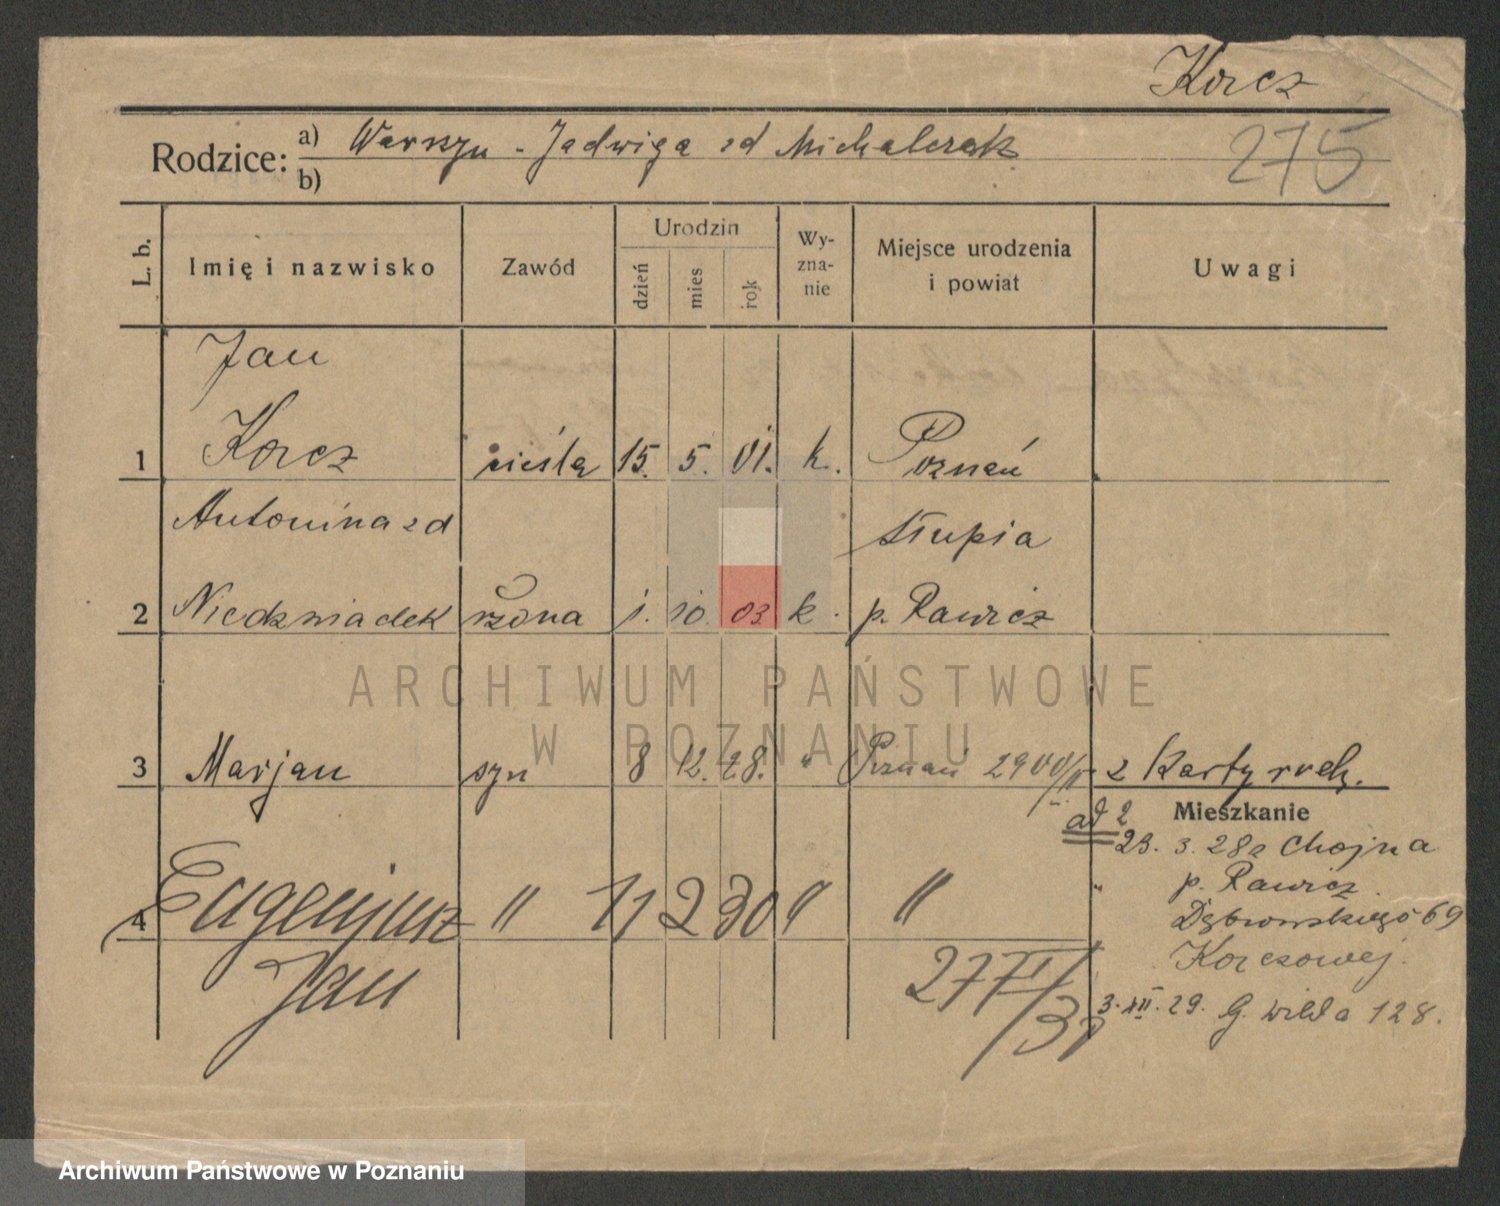 Korcz
275
Rodzice: a) Wawrzyn - Jadwiga zd Michalczak
b)
L. b. Imię i nazwisko Zawód Urodzin dzień mies rok Wy-zna-nie Miejsce urodzenia i powiat Uwagi
Jan
1 Korcz cieśla 15. 5. 01. k. Poznań
Antonina zd Słupia
2 Niedzwiadek żona 1. 10. 03. k. p. Rawicz
3 Marjan syn 8 12. 28. " Poznań z Karty rodz.
Mieszkanie
ad 2
23. 3. 28 z Chojna
" p. Rawicz.
4 Eugenjusz " 11 2 30 " "
Dąbrowskiego 69
Jan
Korczowej.
27 II/30
3. XII. 29. G. Wilda 128.
ARCHIWUM PAŃSTWOWE
W POZNANIU
Archiwum Państwowe w Poznaniu